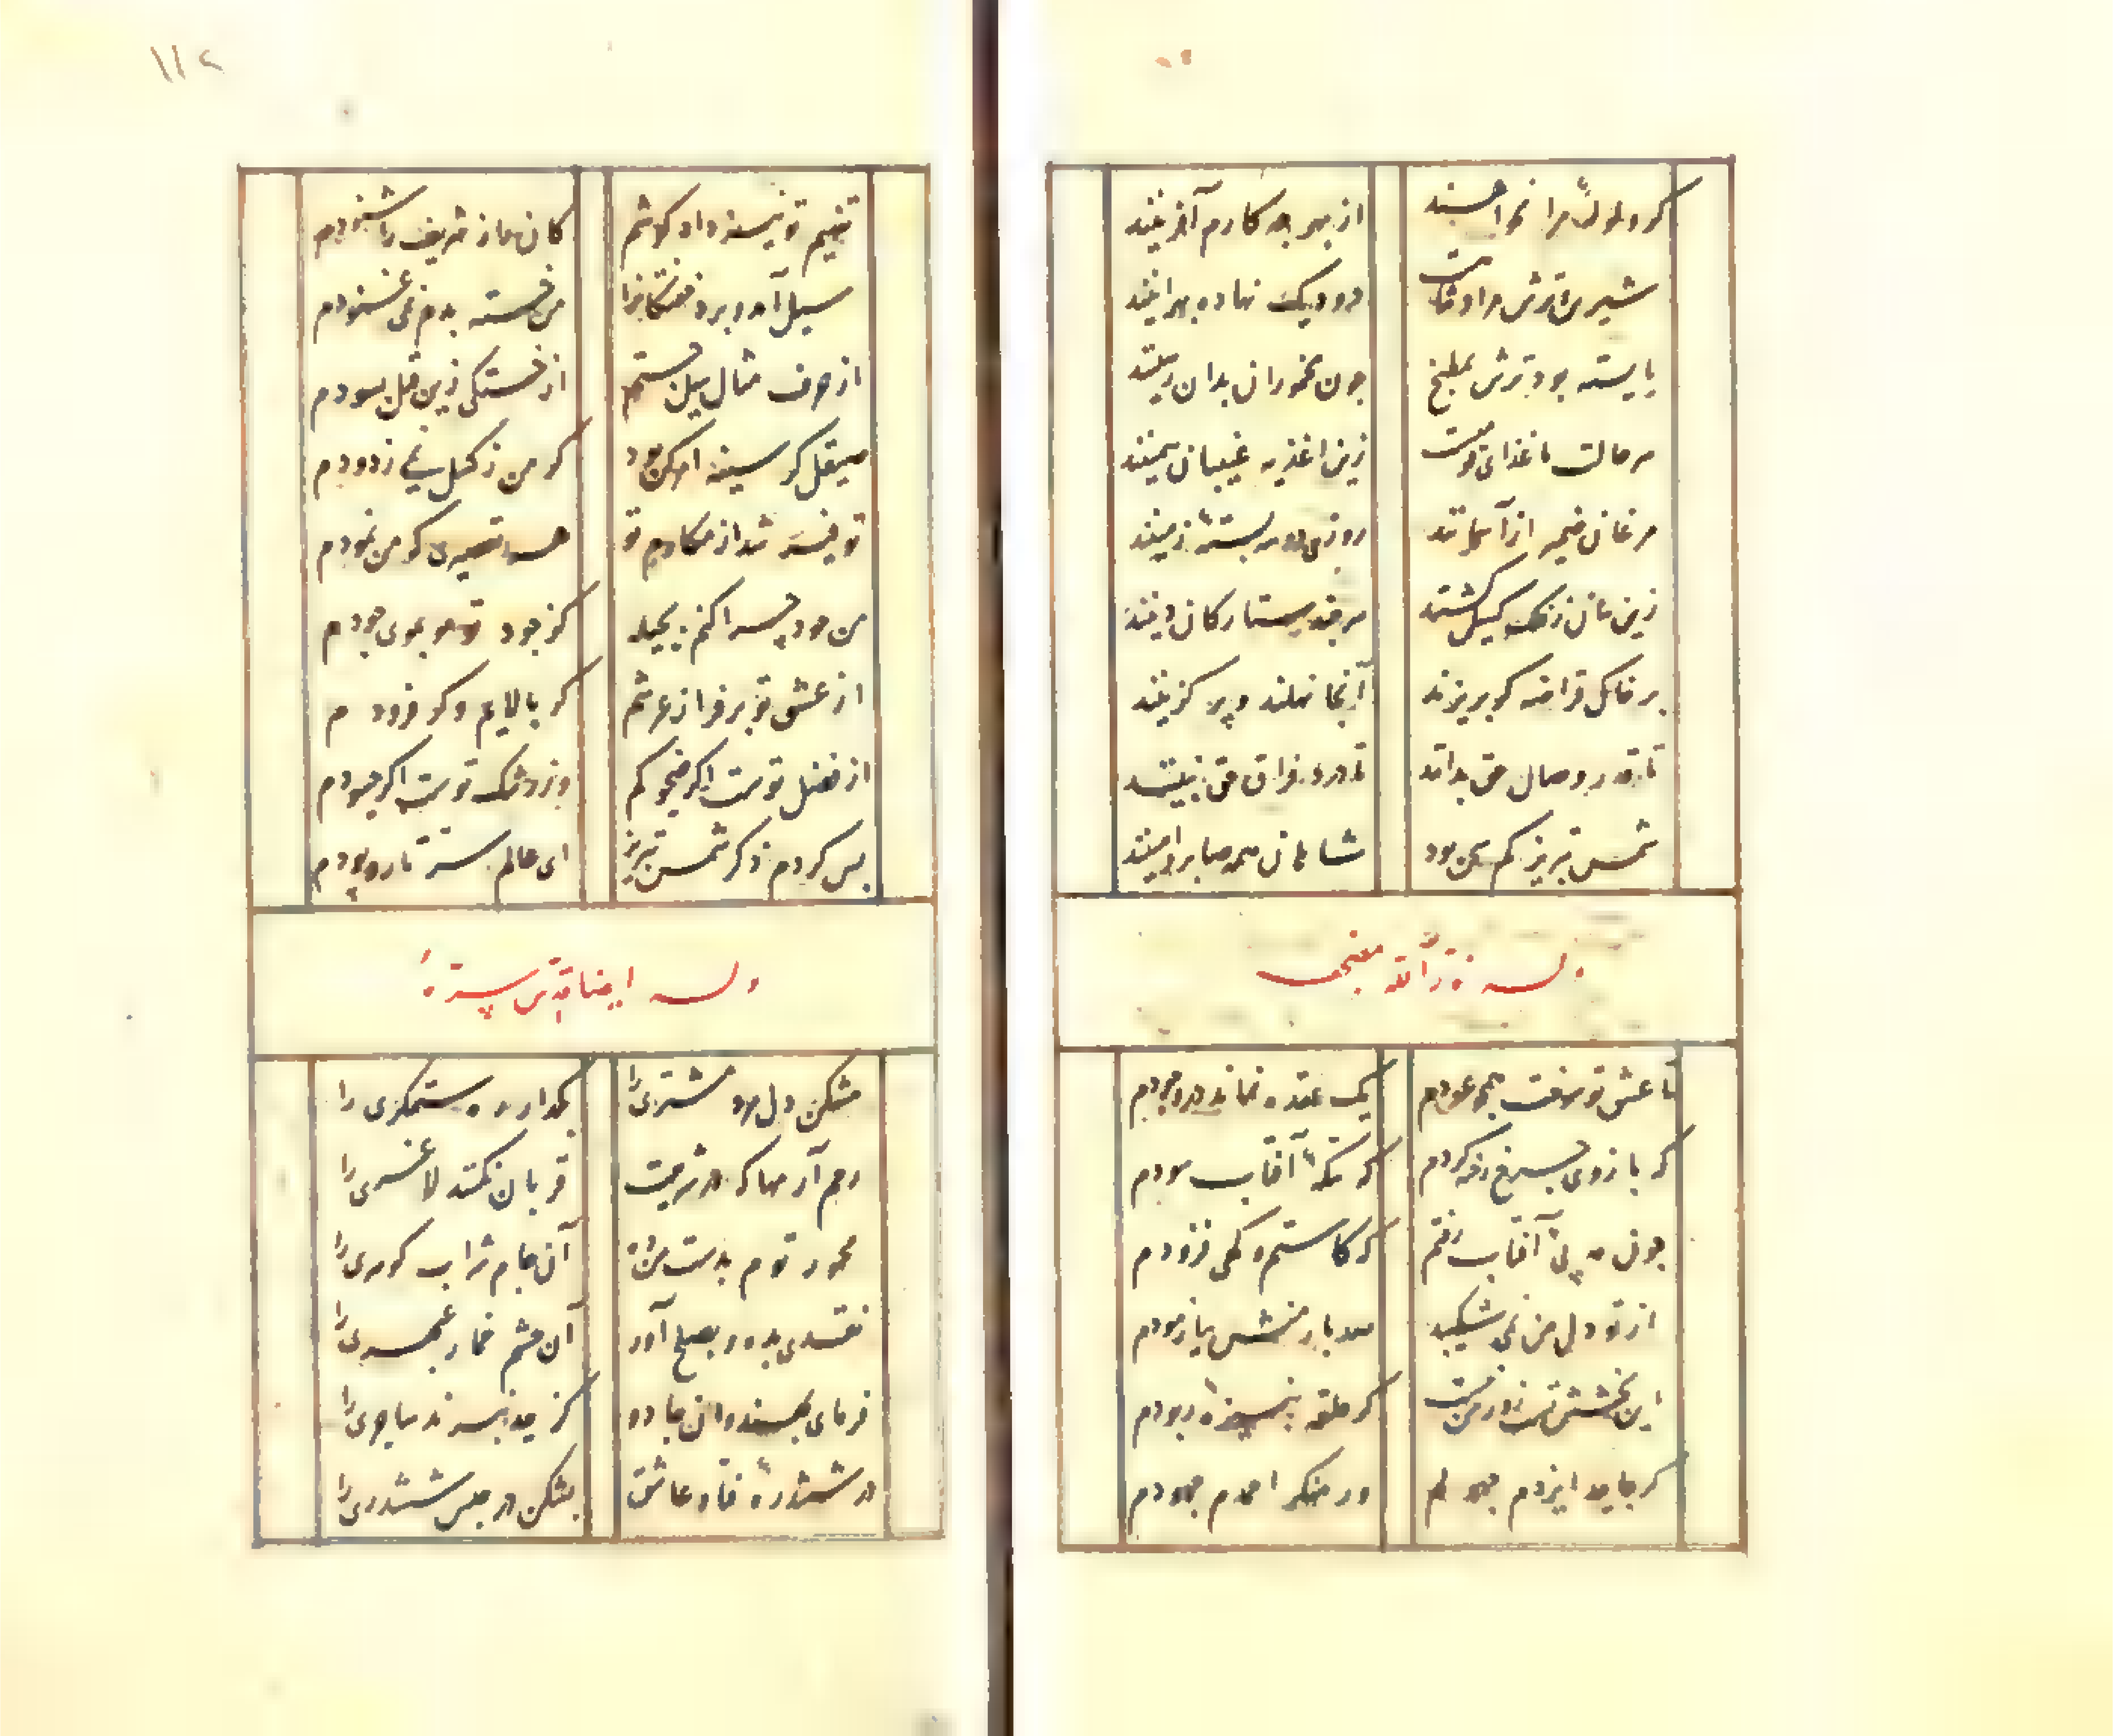 گر ولوله مرا نخواهند
از بهر چه کارم آفریدند
شیرین و ترش مراد شاهست
دو دیک نهاده بهر اینند
بایسته بود ترش بمطبخ
چون مخموران بدان
هر حالت ما غذای قومیست
زین اغذیه غیبیان سمینند
مرغان ضمیر از آسمانند
روزی دو سه بستهٔ زمینند
زین‌سان ز فلک کسیل گشتند
هر چند ستارگان دینند
بر خاک قراضه گر بریزند
آنجا نهلند و برگزینند
تا قدر وصال حق بدانند
تا درد فراق حق ببینند
شمس تبریز کم سخن بود
شاهان همه صابر و امینند
وله نور الله مضجعه
تا عشق تو سوخت همچو عودم
یک عقده نماند در وجودم
که باروی چرخ رخنه کردم
که سکهٔ آفتاب سودم
چون مه پی آفتاب رفتم
که کاستم و کهی فزودم
از تو دل من نمی‌شکیبد
صد بار منش بیازمودم
این بخشش تست زور من نیست
گر حلقهٔ سیم ربودم
گر جاحد ایزدم جهولم
ور منکر احمدم جهودم
١١٢
تفهیم تو تیز داد گوشم
کان راز شریف را شنودم
سیل آمد و برد خفتگانرا
من خسته بدم نمی‌غنودم
از حرف مثال پیل خستم
از خستگی زین قبل
صیقل گر سینه امر کن بود
گر من ز کسل نمی‌زدودم
توفیر شد از مکارم تو
هر تقصیری که من نمودم
من جود چرا کنم بحیله
کز جود تو مو بموی جودم
از عشق تو بر فراز عرشم
گر بالایم و گر فرودم
از فضل تو است اگر ضحوکم
وز رشک تو است اگر حسودم
بس کردم ذکر شمس تبریز
ای عالم سر تار و پودم
وله ایضا قدس سره
مشکن دل مرد مشتری را
بگذار ره ستمگری را
رحم آر مها که در شریعت
قربان نکنند لاغری را
مخمور توم بدست من ده
آن جام شراب گوهری را
بده و بصلح آور
آن چشم خمار عبهری را
فرمای بهندوان جادو
کز حد نبرند ساحری را
در ششدره فتاد عاشق
بشکن در حبس ششدری را